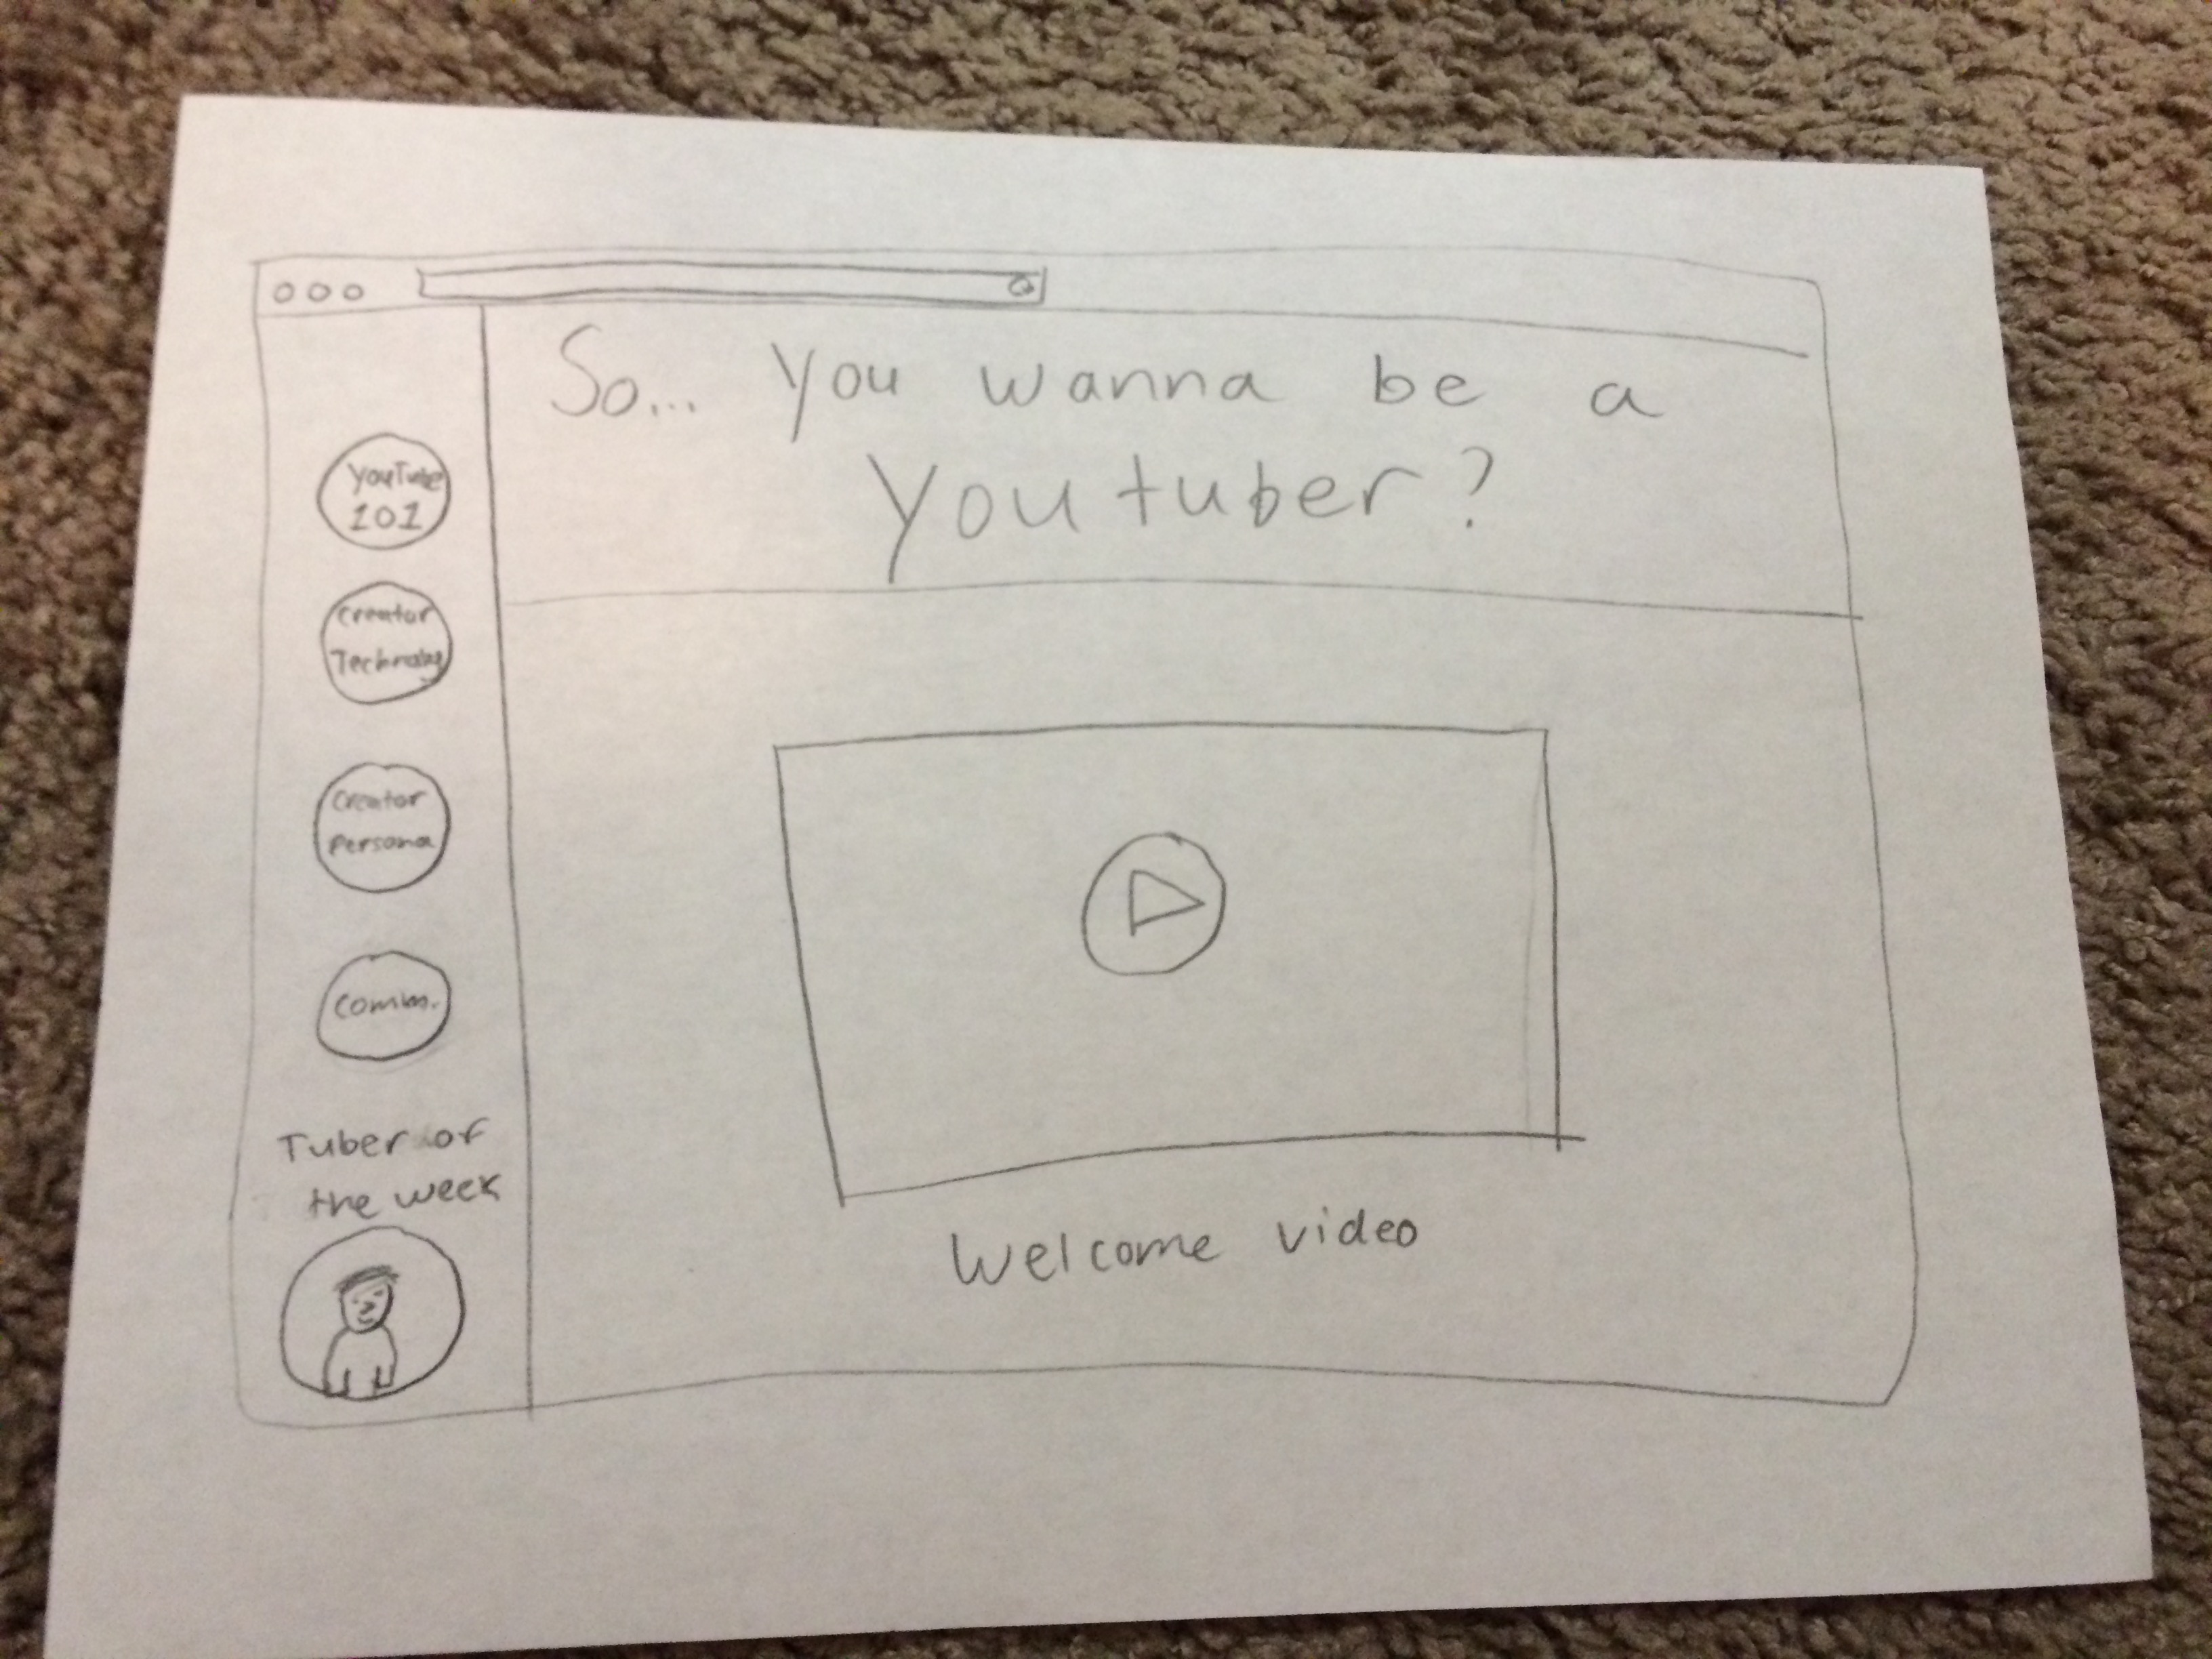 So... you wanna be a
youtuber?
YouTube
101
Creator
Technology
Creator
Persona
Comm.
Tuber of
the week
Welcome video